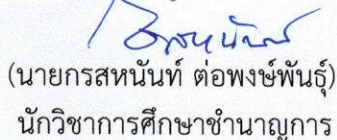 (นายกรสหนันท์ ต่อพงษ์พันธุ์)
นักวิชาการศึกษาชำนาญการ